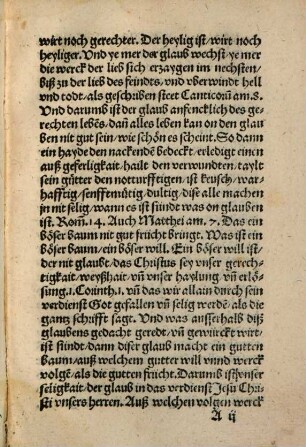 wirt noch gerechter. Der heylig ist/wirt noch
heyliger. Und ye mer der glaub wechst ye mer
die werck der lieb sich erzaygen im nechsten/
biß zu der lieb des feindts/ und uberwindt hell
und todt/ als geschriben steet Canticorũ am.8.
Und darumb ist der glaub anfencklich des ge-
rechten lebẽs/dañ alles leben kan on den glaub
en nit gut sein/wie schön es scheint. So dann
ein hayde den nackendẽ bedeckt/erlediget einen
auß geferligkait/hailt den verwundten/taylt
sein gütter den notturfftigen/ist keusch/war-
hafftig/senfftmütig/dultig/dise alle machen
jn nit sëlig/wann es ist sünd was on glauben
ist. Rom̃.14. Auch Matthei am.7. Das ein
böser baum nit gut frücht bringt. Was ist ein
böser baum/ein böser will. Ein böser will ist/
der nit glaubt/das Christus sey unser gerech-
tigkait/weyßhait/uñ unser haylung uñ erlö-
sung.1.Corinth.1.uñ das wir allain durch sein
verdienst Got gefallen uñ selig werdẽ/als die
gantz schrifft sagt. Und was ausserhalb diß
glaubens gedacht geredt/uñ gewürckt wirt/
ist sünd/dann diser glaub macht ein gutten
baum/auß welchem gutter will unnd werck
volgẽ/als die gutten frücht. Darumb ist unser
seligkait/der glaub in das verdienst Jesu Chri-
sti unsers herren. Auß welchen volgen werck
A ij